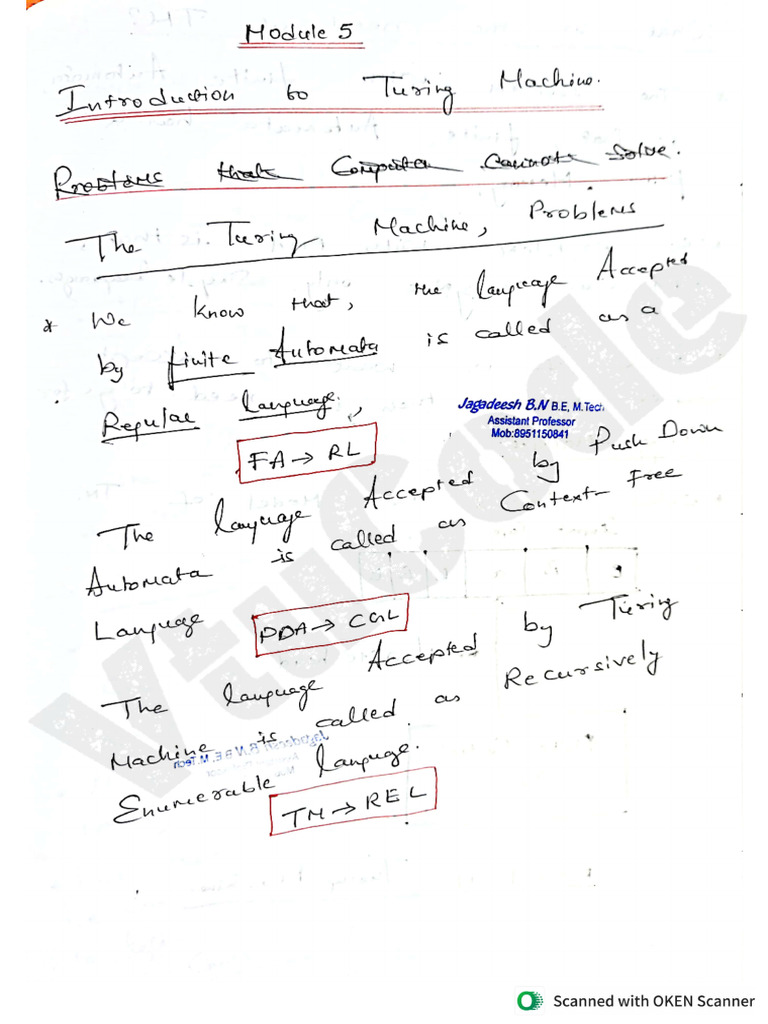 Module 5
Introduction to Turing Machine.
Problems that Computer Cannot Solve.
The Turing Machine, Problems
* We know that, the language Accepted
by finite Automata is called as a
Regular language.,
Jagadeesh B.N B.E, M.Tech
Assistant Professor
Mob:8951150841
FA → RL
The language Accepted by Push Down
Automata is called as Context-Free
Language
PDA → CGL
The language Accepted by Turing
Machine is called as Recursively
Enumerable language.
TM → REL
VtuCode
Scanned with OKEN Scanner